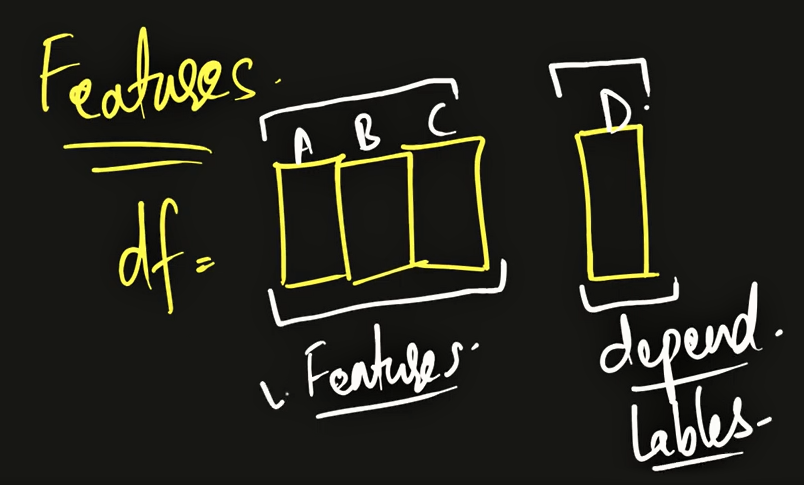 Features.
A B C D.
df =
Features.
depend.
Lables-